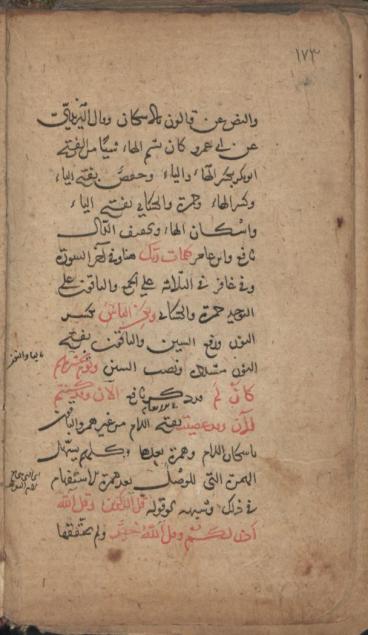 ١٧٣
والنص عن قالون بالاسكان وقال اليزيدي
عن ابي عمرو كان يشم الهاء شيئا من الفتح
ابو بكر بكسر الهاء والياء وحفص بفتح الياء
وكسر الهاء وحمزة والكسائي بفتح الياء
واسكان الهاء وتخفيف الدال
نافع وابن عامر كلمات ربك هنا وفي آخر السورة
وفي غافر في الثلاثة على الجمع والباقون على
التوحيد حمزة والكسائي ولكن الناس بكسر
النون ورفع السين والباقون بفتح
النون مشددة ونصب السين ويوم نحشرهم
كان لم قد ذكر نافع الان وقد كنتم
الان وقد عصيت بفتح اللام من غير همز والباقون
باسكان اللام وهمزة بعدها وكلهم يسهل
الهمزة التي للوصل بعد همزة الاستفهام
في ذلك وشبهه نحو قوله قل آلذكرين وقل آلله
اذن لكم وقل آلله خير ولم يحققها